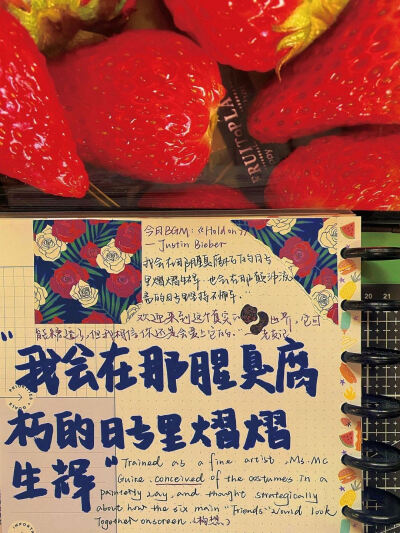 FRUIT PLA
今日BGM:《Hold on》
— Justin Bieber
我会在那腥臭腐朽的日子
里熠熠生辉，也会在那颠沛流
离的日子里
欢迎来到这个真实的世界，它可
能糟透了，但我相信你还是会爱上它的。——老友记
20 21
"我会在那腥臭腐
朽的日子里熠熠
生辉"
Trained as a fine artist, Ms. Mc
Guire conceived of the costumes in a
painterly way, and thought strategically
about how the six main "Friends" would look
together onscreen.(构想)
IMPORTA